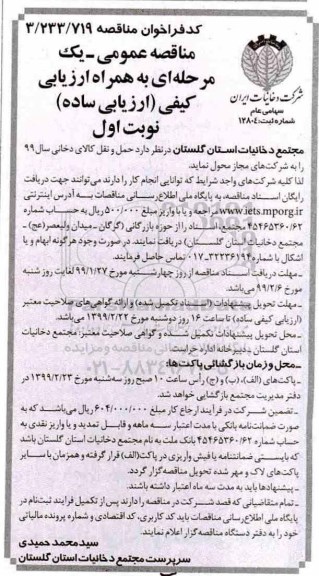 کد فراخوان مناقصه ۳/۲۳۳/۷۱۹
مناقصه عمومی - یک
مرحله‌ای به همراه ارزیابی
کیفی (ارزیابی ساده)
نوبت اول
شرکت دخانیات ایران
سهامی عام
شماره ثبت: ۱۲۸۰٤
مجتمع دخانیات استان گلستان در نظر دارد حمل و نقل کالای دخانی سال ۹۹
را به شرکت‌های مجاز محول نماید.
لذا کلیه شرکت‌های واجد شرایط که توانایی انجام کار را دارند می‌توانند جهت دریافت
رایگان اسناد مناقصه، به پایگاه ملی اطلاع رسانی مناقصات به آدرس اینترنتی
www.iets.mporg.ir مراجعه و یا با واریز مبلغ ۵۰۰/۰۰۰ ریال به حساب شماره
۴۵۴۶۵۳۶۰/۶۲ مجتمع، اسناد را از حوزه بازرگانی (گرگان - میدان ولیعصر (عج) -
مجتمع دخانیات استان گلستان) دریافت نمایند. در صورت وجود هرگونه ابهام و یا
اشکال با شماره ۳۲۲۳۶۱۹۴-۰۱۷ تماس حاصل فرمایند.
- مهلت دریافت اسناد مناقصه از روز چهارشنبه مورخ ۹۹/۱/۲۷ لغایت روز شنبه
مورخ ۹۹/۲/۶ می باشد.
- مهلت تحویل پیشنهادات (اسناد تکمیل شده) و ارائه گواهی‌های صلاحیت معتبر
(ارزیابی کیفی ساده) تا ساعت ۱۶ روز دوشنبه مورخ ۱۳۹۹/۲/۲۲ می‌باشد.
- محل تحویل پیشنهادات تکمیل شده و گواهی صلاحیت معتبر: مجتمع دخانیات
استان گلستان - دبیرخانه اداره حراست
- محل و زمان بازگشائی پاکت‌ها:
- پاکت‌های (الف)، (ب) و (ج) رأس ساعت ۱۰ صبح روز سه‌شنبه مورخ ۱۳۹۹/۲/۲۳ در
دفتر مدیریت مجتمع بازگشایی خواهد شد.
- تضمین شرکت در فرآیند ارجاع کار مبلغ ۶۰۴/۰۰۰/۰۰۰ ریال می‌باشد که به
صورت ضمانت‌نامه بانکی با مدت اعتبار سه ماهه و قابل تمدید و یا واریز نقدی به
حساب شماره ۴۵۴۶۵۳۶۰/۶۲ بانک ملت به نام مجتمع دخانیات استان گلستان باشد
که بایستی ضمانتنامه یا فیش واریزی در پاکت (الف) قرار گرفته و همزمان با سایر
پاکت‌های لاک و مهر شده تحویل مناقصه‌گزار گردد.
- پیشنهادها باید به مدت سه ماه اعتبار داشته باشند.
- تمام متقاضیانی که قصد شرکت در مناقصه را دارند پس از تکمیل فرایند ثبت‌نام در
پایگاه ملی اطلاع رسانی مناقصات باید کد کاربری، کد اقتصادی و شماره پرونده مالیاتی
خود را به دفتر دستگاه مناقصه گزار اعلام نمایند.
سید محمد حمیدی
سرپرست مجتمع دخانیات استان گلستان